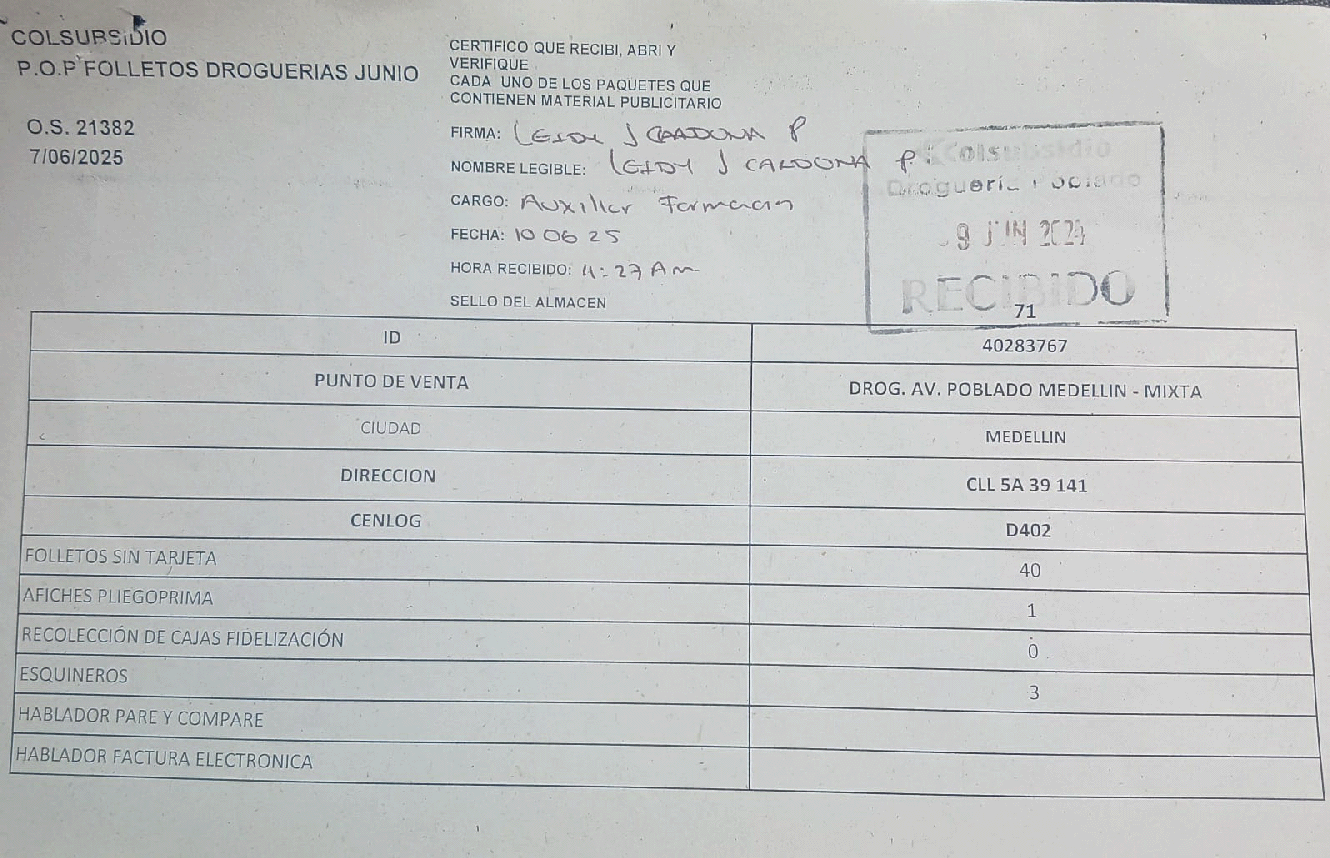 COLSUBSIDIO
P.O.P FOLLETOS DROGUERIAS JUNIO
O.S. 21382
7/06/2025
CERTIFICO QUE RECIBI, ABRI Y
VERIFIQUE
CADA UNO DE LOS PAQUETES QUE
CONTIENEN MATERIAL PUBLICITARIO
FIRMA: LEIDY J CARDONA P
NOMBRE LEGIBLE: LEIDY J CARDONA P
CARGO: Auxiliar Farmacia
FECHA: 10 06 25
HORA RECIBIDO: 11:27 AM
SELLO DEL ALMACEN
Colsubsidio
Droguería
9 JUN
RECIBIDO
71
ID 40283767
PUNTO DE VENTA DROG. AV. POBLADO MEDELLIN - MIXTA
CIUDAD MEDELLIN
DIRECCION CLL 5A 39 141
CENLOG D402
FOLLETOS SIN TARJETA 40
AFICHES PLIEGOPRIMA 1
RECOLECCIÓN DE CAJAS FIDELIZACIÓN 0
ESQUINEROS 3
HABLADOR PARE Y COMPARE
HABLADOR FACTURA ELECTRONICA